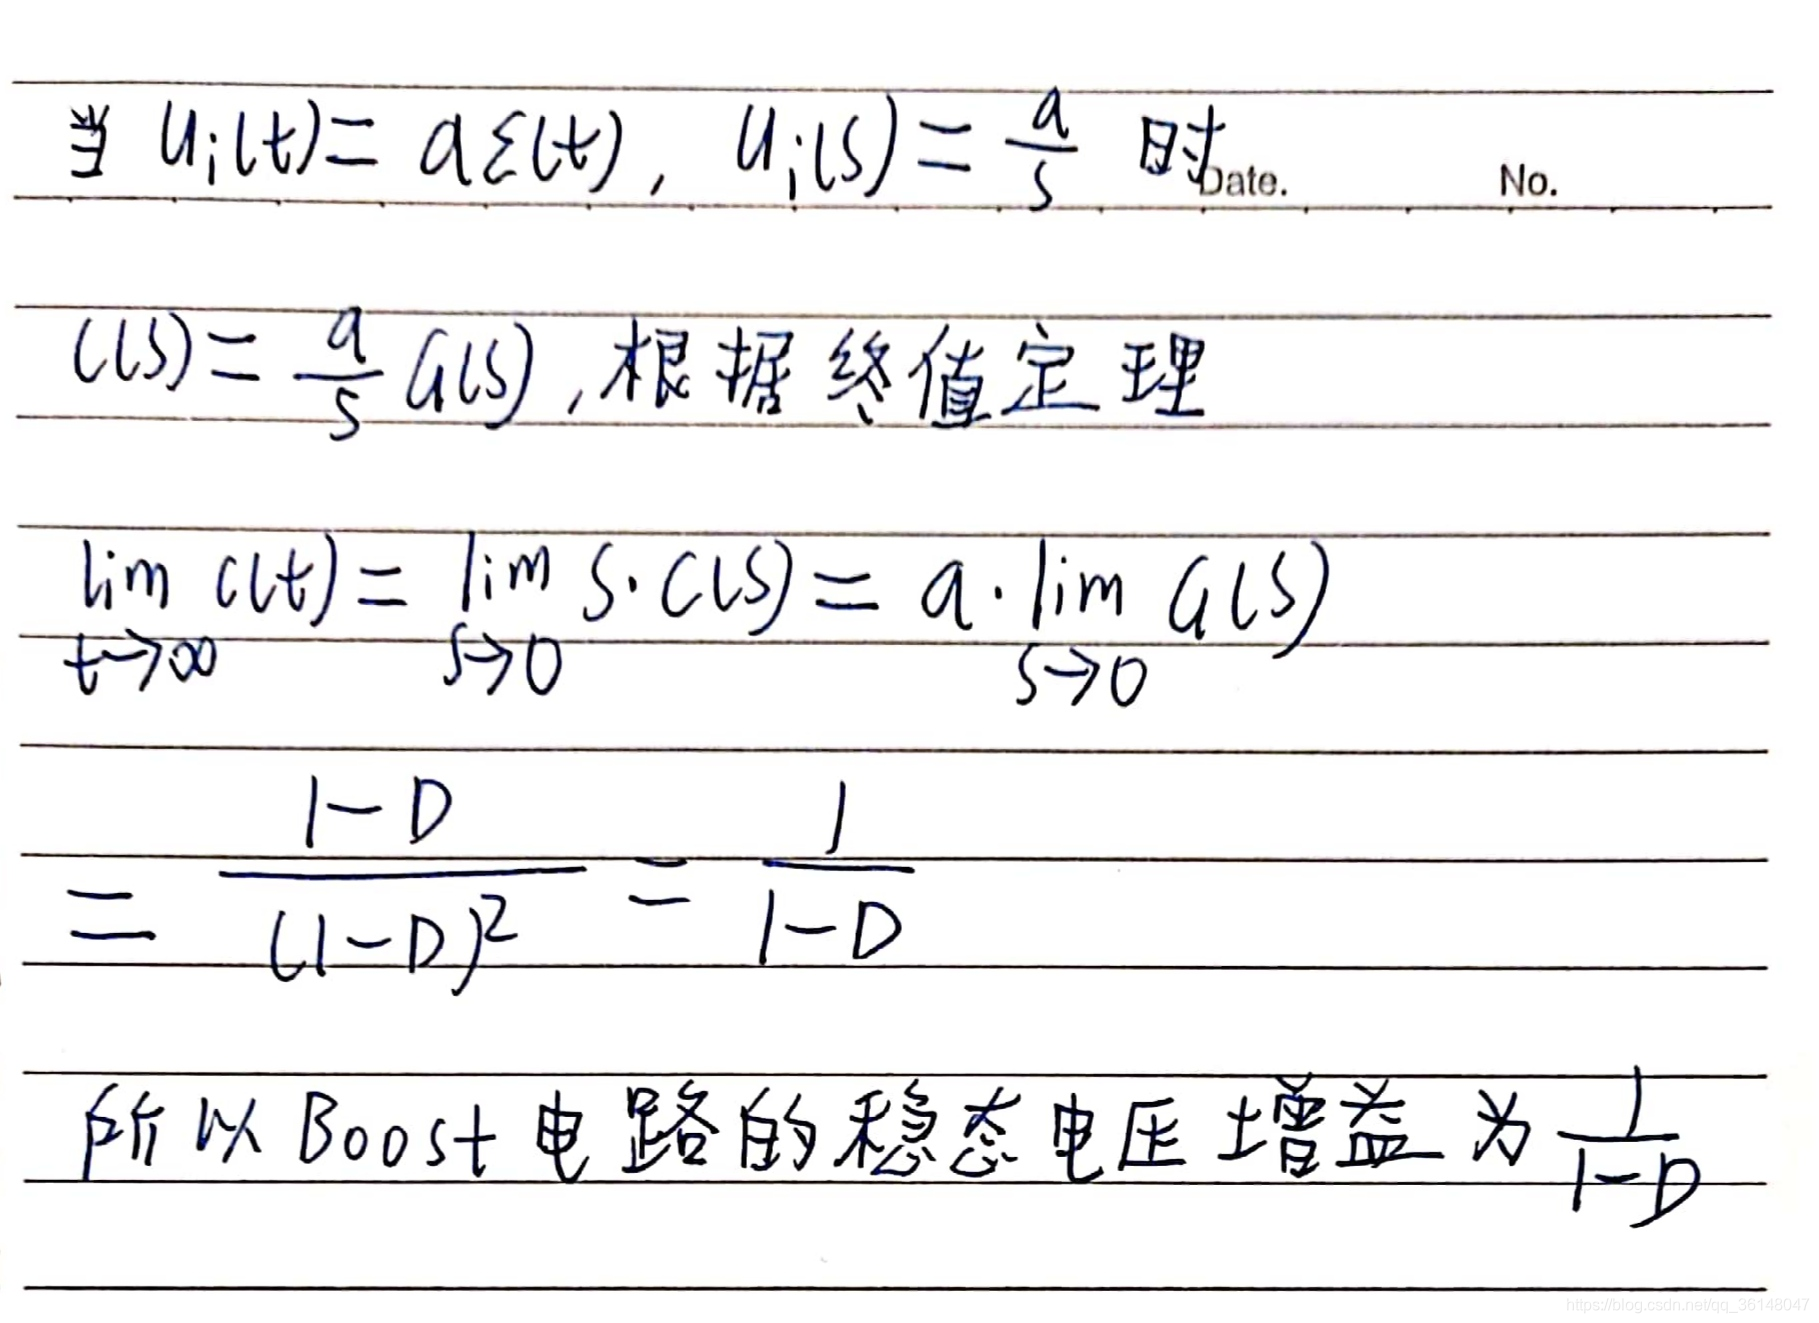 当 u_i(t) = aε(t), u_i(s) = a/s 时
Date. No.
C(s) = a/s G(s), 根据终值定理
lim_{t→∞} c(t) = lim_{s→0} s·C(s) = a·lim_{s→0} G(s)
= (1-D)/(1-D)² = 1/(1-D)
所以 Boost 电路的稳态电压增益为 1/(1-D)
https://blog.csdn.net/qq_36148047